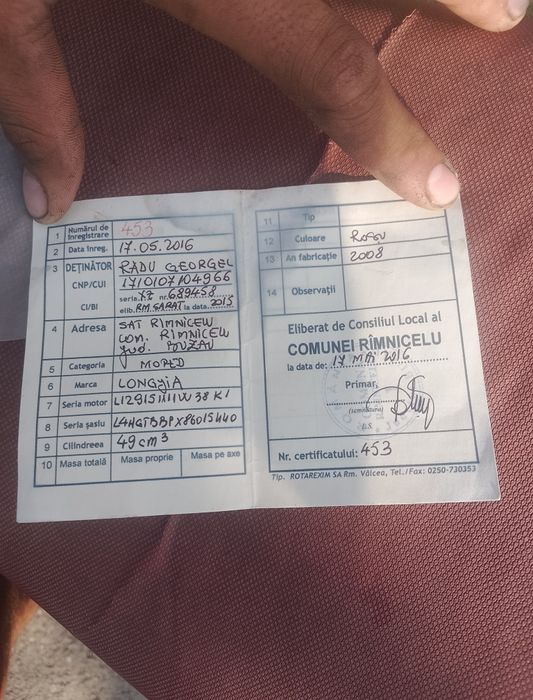 1 Numărul de înregistrare 453
2 Data înreg. 17.05.2016
3 DEȚINĂTOR RADU GEORGEL
CNP/CUI 1710107104966
CI/BI seria XZ nr. 689458
elib. RM SARAT la data 2015
4 Adresa SAT RÎMNICELU
com. RÎMNICELU
jud. BUZĂU
5 Categoria MOPED
6 Marca LONGJIA
7 Seria motor
8 Seria șasiu
9 Cilindreea 49 cm³
10 Masa totală Masa proprie Masa pe axe
11 Tip
12 Culoare ROȘU
13 An fabricație 2008
14 Observații
Eliberat de Consiliul Local al
COMUNEI RÎMNICELU
la data de: 17 MAI 2016
Primar,
(semnătura)
L.S.
Nr. certificatului: 453
Tip. ROTAREXIM SA Rm. Vâlcea, Tel./Fax: 0250-730353